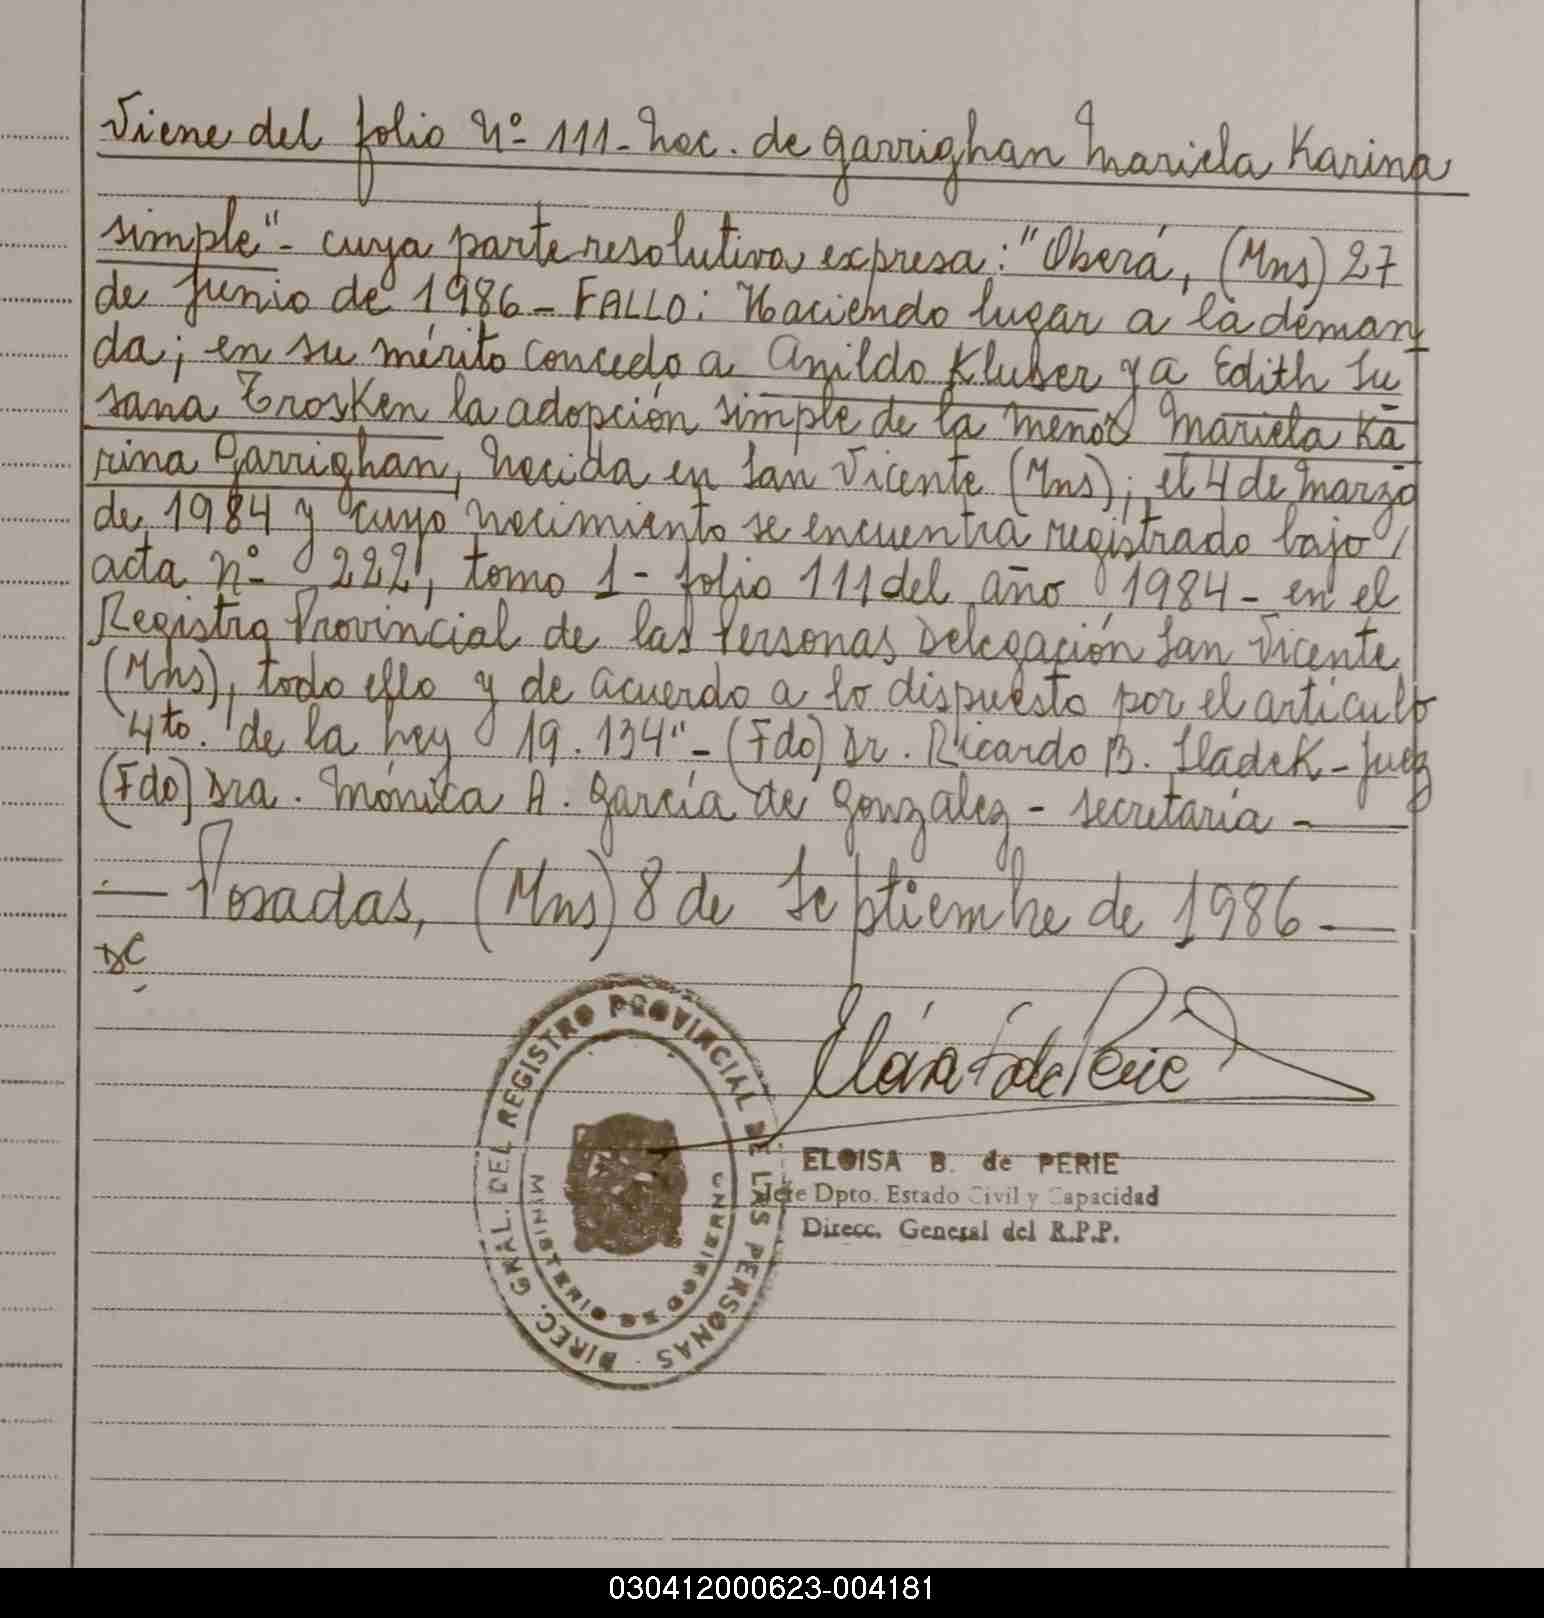 Viene del folio Nº 111- Nac. de Garrighan Mariela Karina
simple"- cuya parte resolutiva expresa: "Oberá, (Mns) 27
de Junio de 1986 - FALLO: Haciendo lugar a la deman
da; en su mérito concedo a Anildo Kluber y a Edith Su
sana Trosken la adopción simple de la menor Mariela Ka
rina Garrighan, nacida en San Vicente (Mns); el 4 de Marzo
de 1984 y cuyo nacimiento se encuentra registrado bajo /
acta nº 222, tomo 1 - folio 111 del año 1984 - en el
Registro Provincial de las Personas Delegación San Vicente
(Mns), todo ello y de acuerdo a lo dispuesto por el artículo
4to. de la Ley 19.134"- (Fdo) Dr. Ricardo B. Sladek - Juez
(Fdo) Dra. Mónica A. García de Gonzalez - secretaria -
- Posadas, (Mns) 8 de Septiembre de 1986 -
DIREC. GRAL. DEL REGISTRO PROVINCIAL DE LAS PERSONAS
MINISTERIO DE GOBIERNO
ELOISA B. de PERIE
Jefe Dpto. Estado Civil y Capacidad
Direcc. General del R.P.P.
030412000623-004181